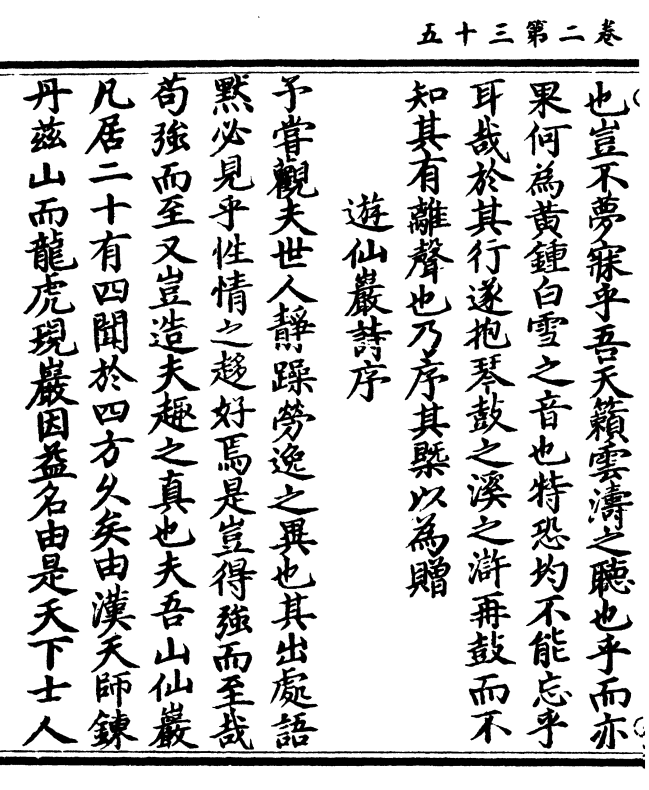 卷二第三十五
也豈不夢寐乎吾天籟雲濤之聽也乎而亦
果何為黃鍾白雪之音也特恐均不能忘乎
耳哉於其行遂抱琴鼓之溪之滸再鼓而不
知其有離聲也乃序其槩以為贈
遊仙巖詩序
予嘗觀夫世人靜躁勞逸之異也其出處語
默必見乎性情之趍好焉是豈得強而至哉
苟強而至又豈造夫趣之真也夫吾山仙巖
凡居二十有四聞於四方久矣由漢天師鍊
丹茲山而龍虎現巖因益名由是天下士人